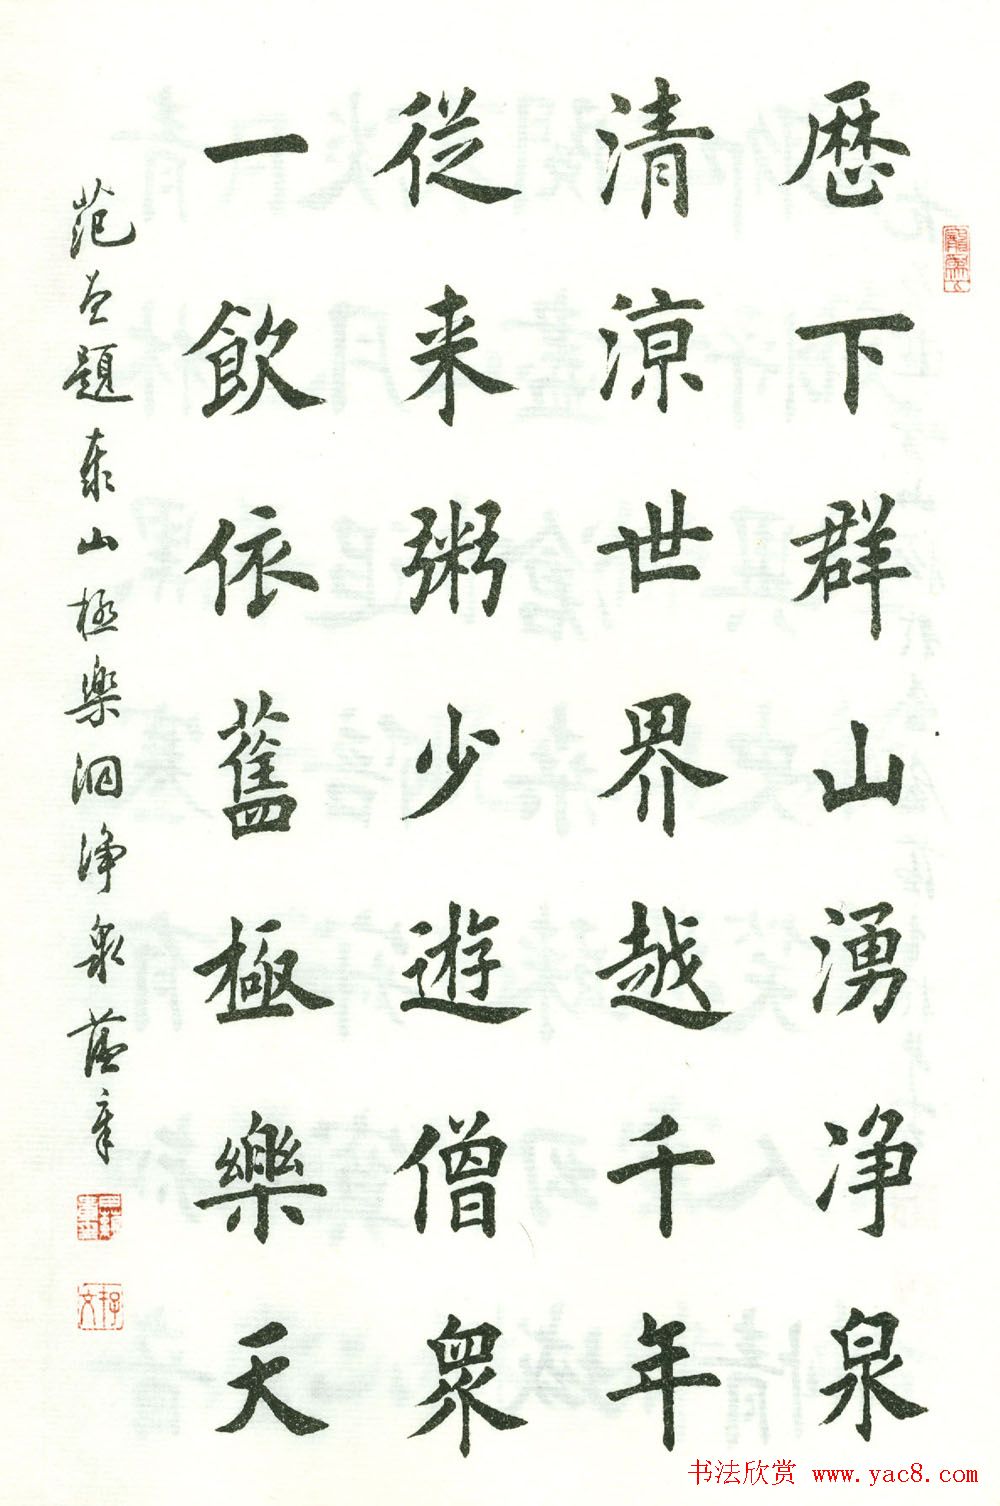 歴下群山湧净泉
清涼世界越千年
從来粥少遊僧衆
一飲依舊極樂天
范題泰山極樂洞净泉
书法欣赏 www.yac8.com